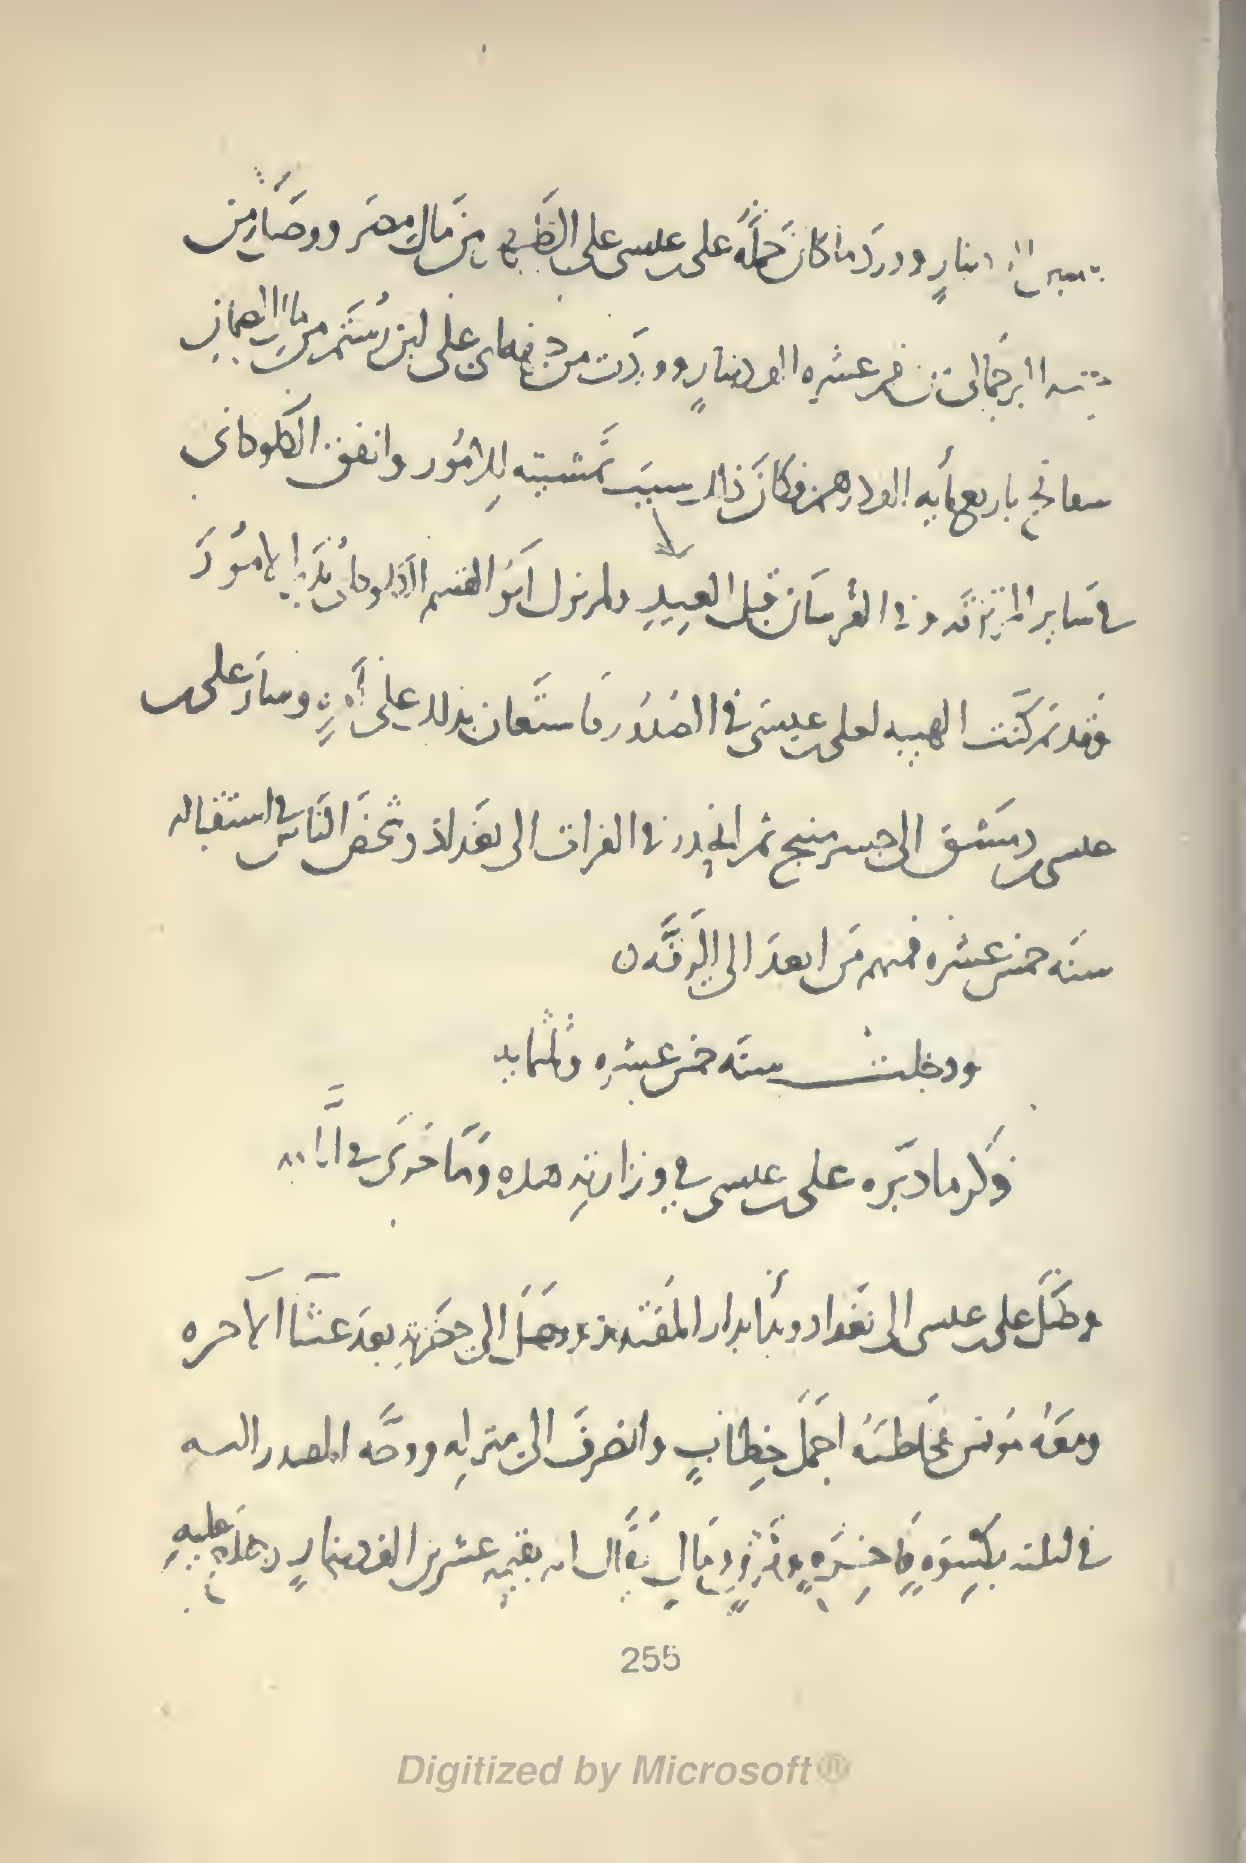 دينار وورد ما كان حمله على بن عيسى على الظهر من مال مصر ووصل من
جهة البرجمالى عشره الف دينار ووردت من جهة على ابن رستم من مال
سفاتج باربعمأيه الف درهم فكان ذلك سبب تمشيته للامور وانفق الكلوذانى
فى ساير المرتزقه وفى الفرسان قبل العيد ولم يزل ابو القسم الكلوذانى يدبر الامور
وقد تمكنت الهيبه لعلى بن عيسى فى الصدور فاستعان بذلك على امره وسار على بن
عيسى من دمشق الى جسر منبج ثم انحدر فى الفرات الى بغداذ وشخص الناس فى استقباله
سنه خمس عشره فمنهم من ابعد الى الرقه
ودخلت سنه خمس عشره وثلثمايه
ذكر ما دبره على بن عيسى فى وزارته هذه وما جرى فى ايامه
وصل على بن عيسى الى بغداد وبدأ بدار المقتدر ووصل الى حضرته بعد عشا الاخره
ومعه مونس فخاطبه اجمل خطاب وانصرف الى منزله ووجه المقتدر اليه
فى ليلته بكسوه فاخره وفرش ومال يقال انه بقيمه عشرين الف دينار وخلع عليه
255
Digitized by Microsoft®